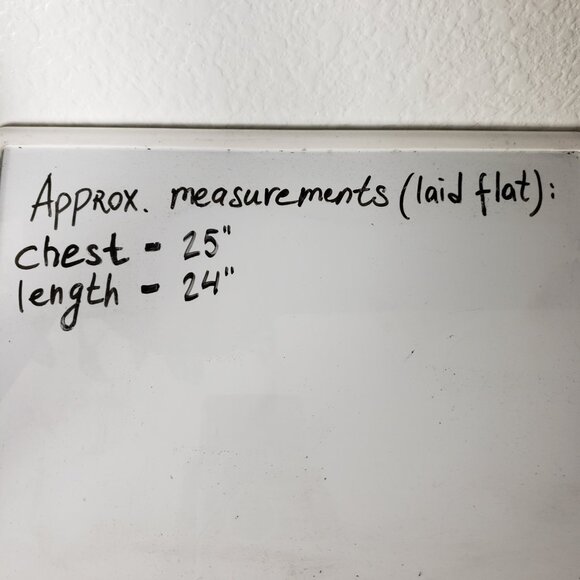 Approx. measurements (laid flat):
chest - 25"
length - 24"